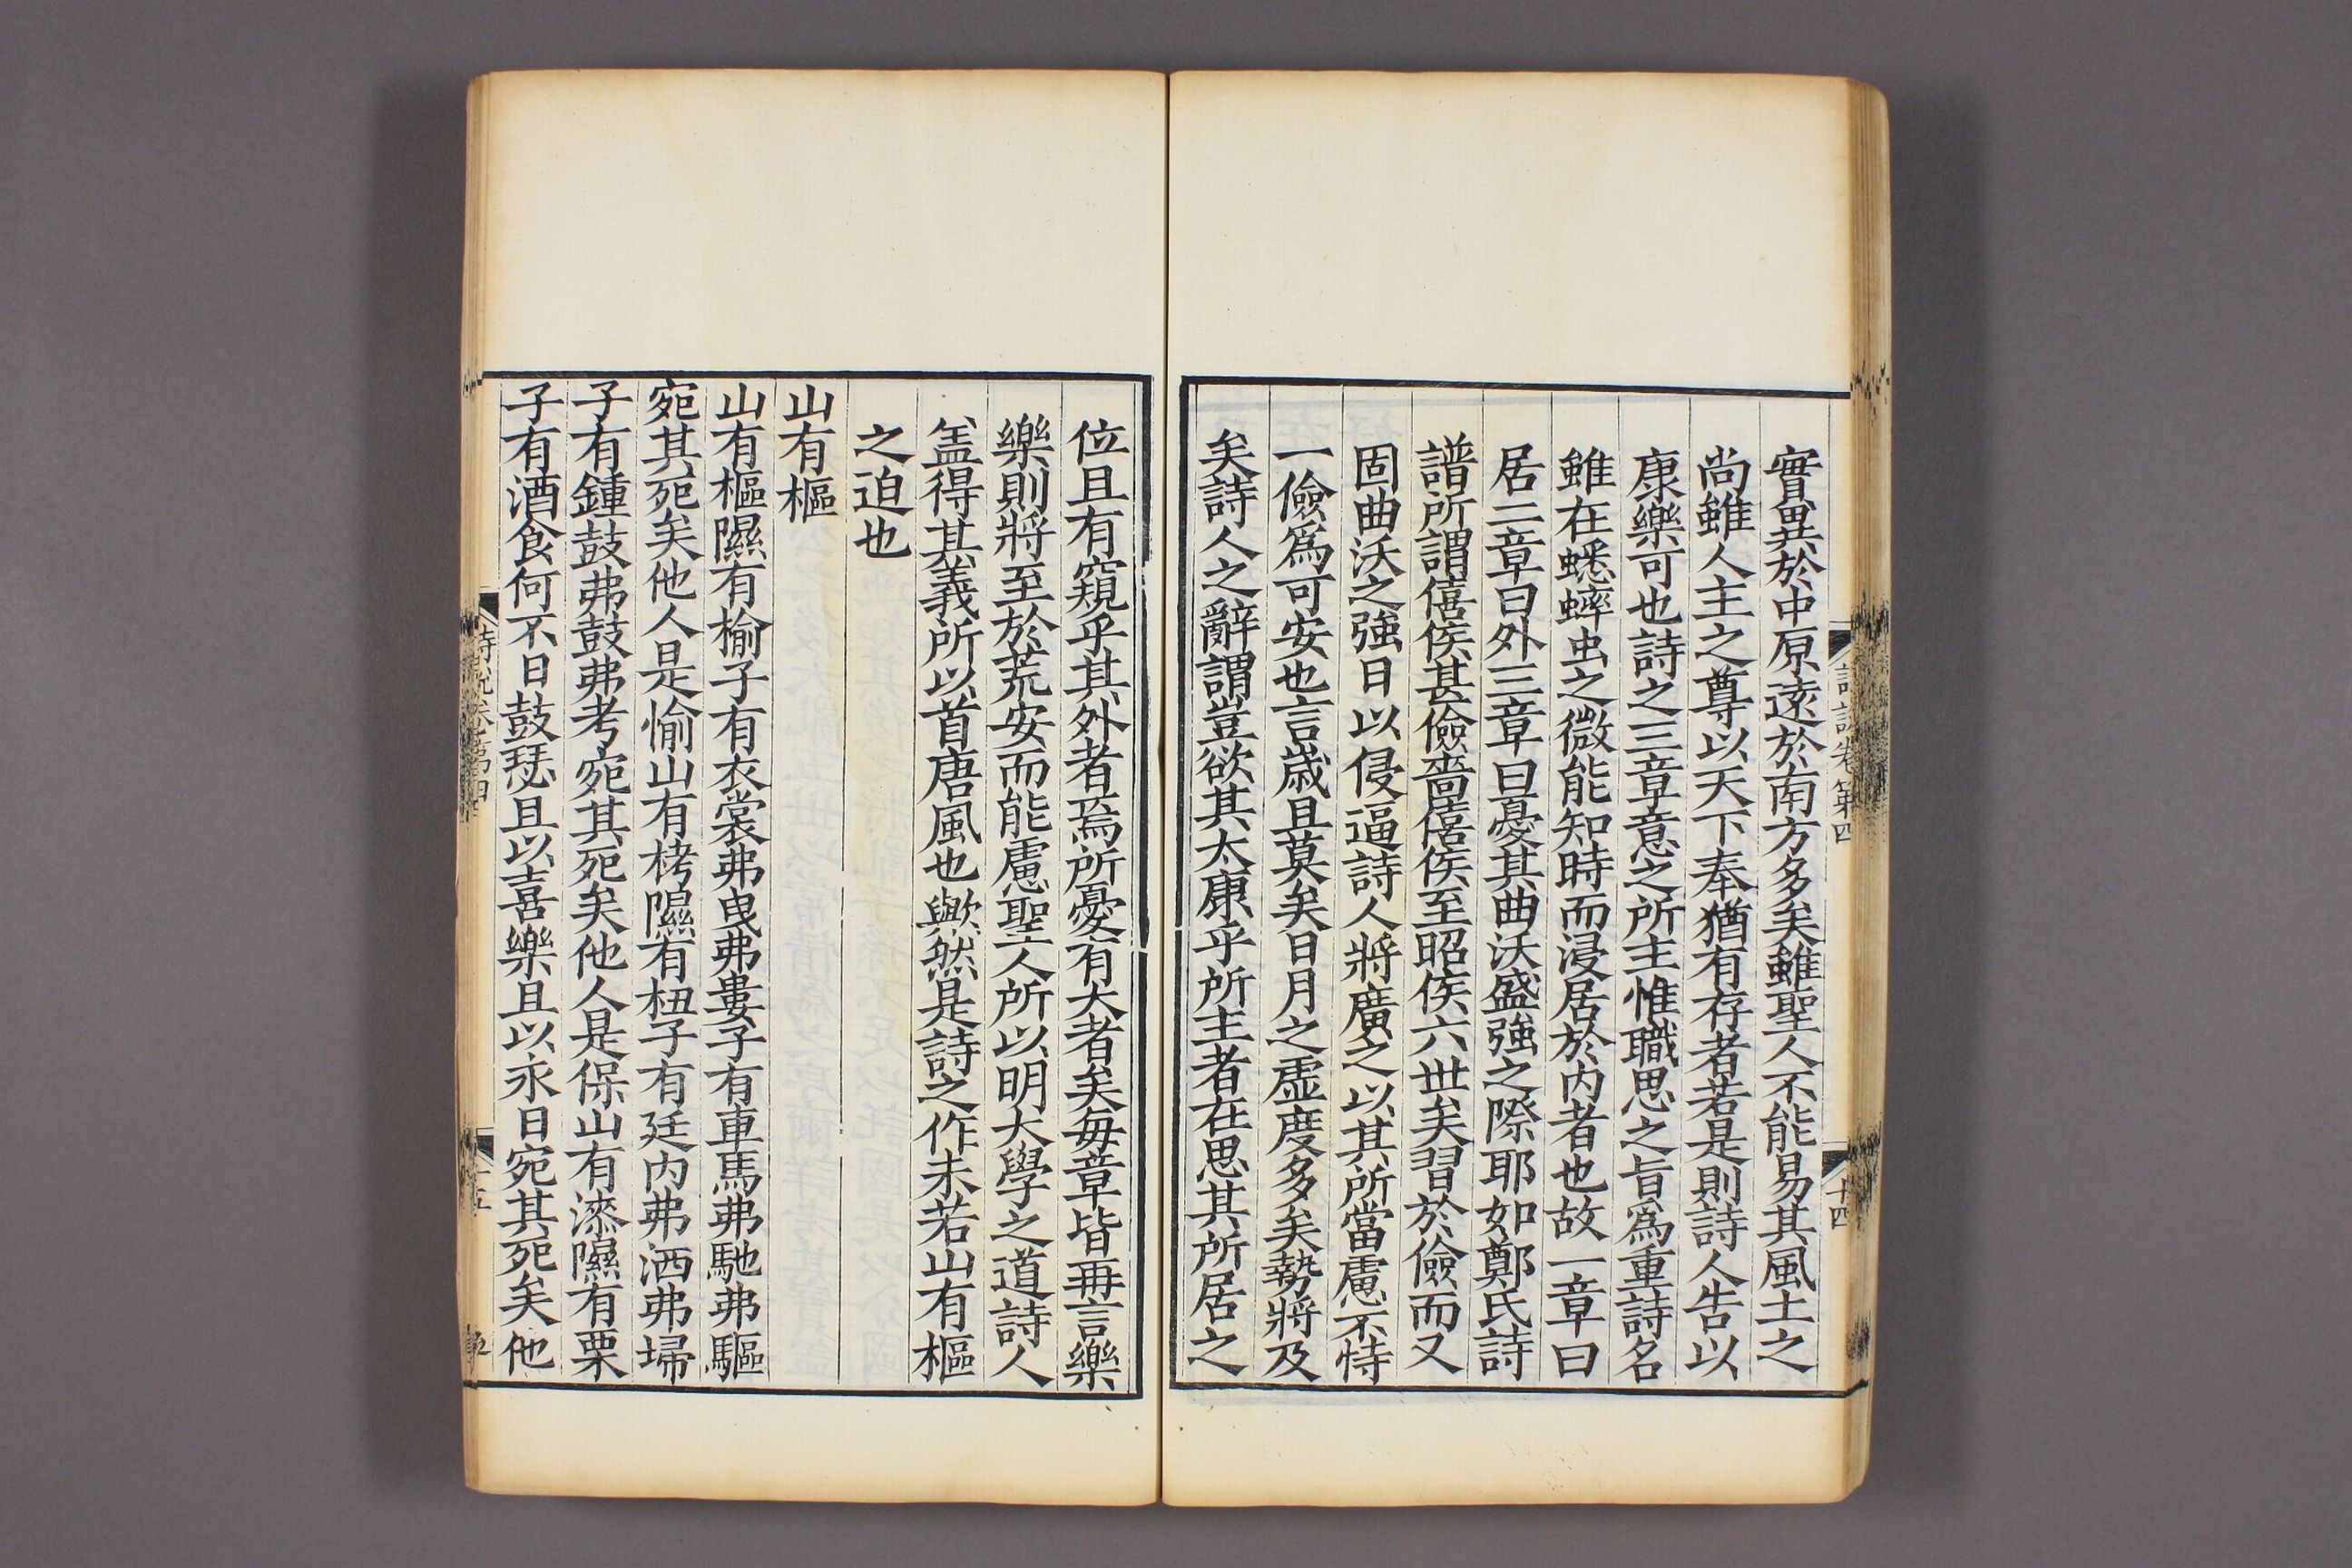 實異於中原遠於南方多矣雖聖人不能易其風土之
尚雖人主之尊以天下奉猶有存者若是則詩人告以
康樂可也詩之三章意之所主惟職思之旨爲重詩名
雖在蟋蟀虫之微能知時而浸居於内者也故一章曰
居二章曰外三章曰憂其曲沃盛強之際耶如鄭氏詩
譜所謂僖侯甚儉嗇僖侯至昭侯六世矣習於儉而又
固曲沃之強日以侵逼詩人將廣之以其所當慮不恃
一儉爲可安也言歳且莫矣日月之虛度多矣勢將及
矣詩人之辭謂豈欲其太康乎所主者在思其所居之
詩說卷第四
十四
位且有窺乎其外者焉所憂有大者矣每章皆再言樂
樂則將至於荒安而能慮聖人所以明大學之道詩人
盖得其義所以首唐風也歟然是詩之作未若山有樞
之迫也
山有樞
山有樞隰有榆子有衣裳弗曳弗婁子有車馬弗馳弗驅
宛其死矣他人是愉山有栲隰有杻子有廷内弗洒弗埽
子有鍾鼓弗鼓弗考宛其死矣他人是保山有漆隰有栗
子有酒食何不日鼓瑟且以喜樂且以永日宛其死矣他
詩說卷第四
十五